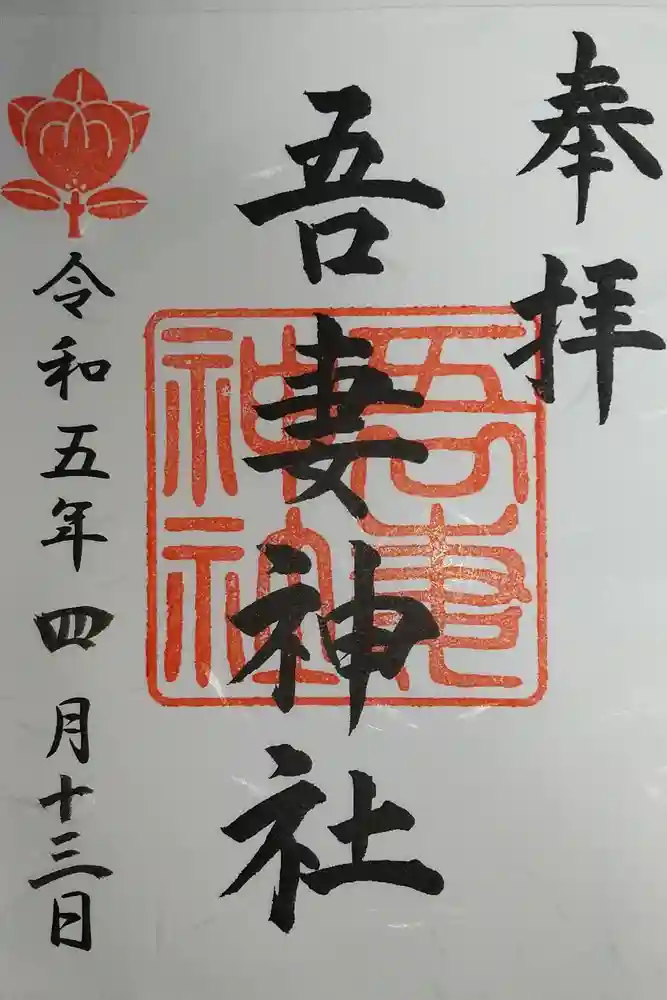 奉拝
吾妻神社
吾妻
神社
令和五年四月十三日